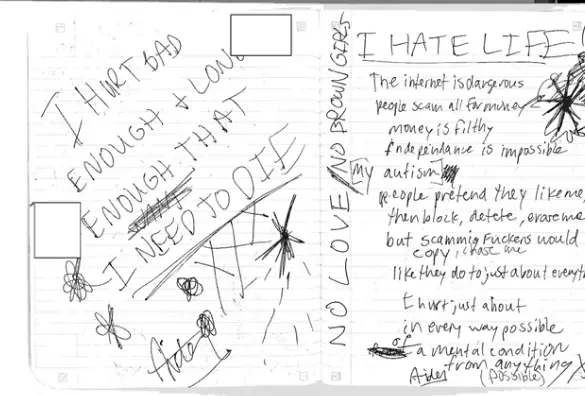 I HURT BAD
ENOUGH & LONG
ENOUGH THAT
I NEED TO DIE
Aiden
NO LOVE / NO BROWN GIRLS
I HATE LIFE
The internet is dangerous
people scam all for money
money is filthy
independance is impossible
[my autism]
people pretend they like me,
then block, delete, erase me
but scamming Fuckers would
copy, chase me
like they do to just about everyth
I hurt just about
in every way possible
of a mental condition
from anything
(possible)
Aiden